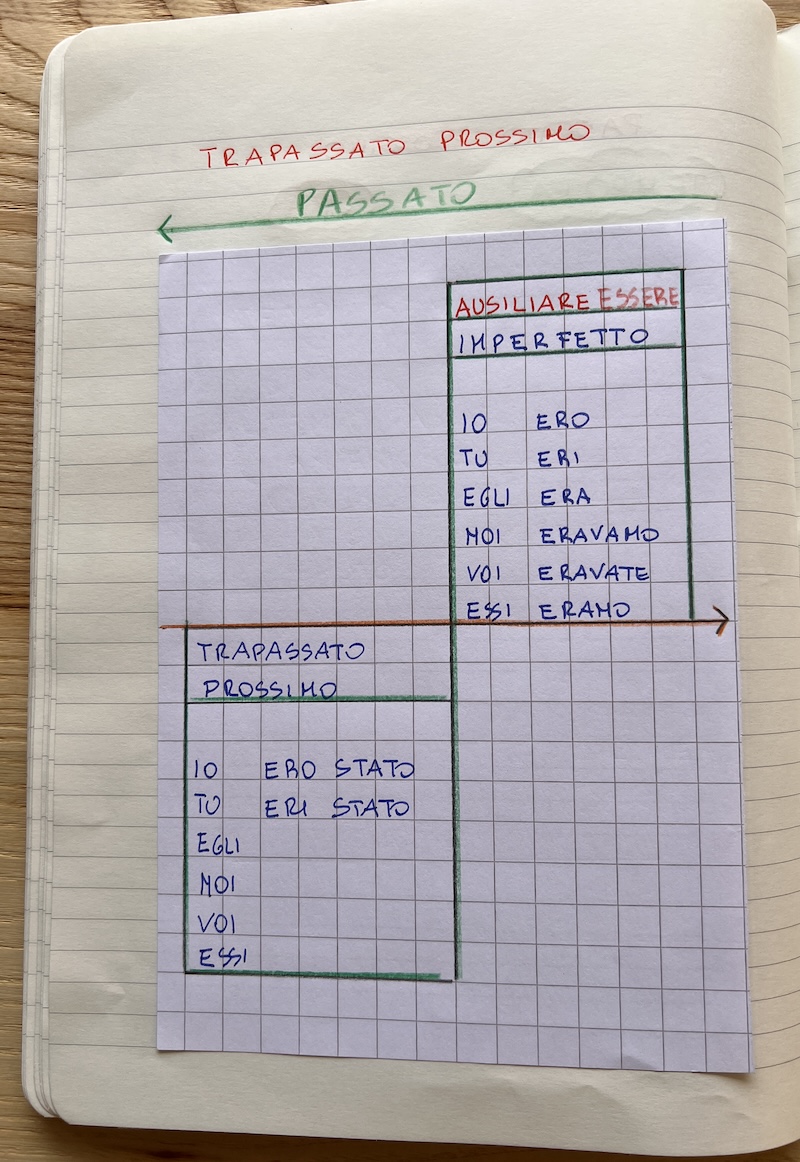 TRAPASSATO PROSSIMO
PASSATO
AUSILIARE ESSERE
IMPERFETTO
IO ERO
TU ERI
EGLI ERA
NOI ERAVAMO
VOI ERAVATE
ESSI ERANO
TRAPASSATO
PROSSIMO
IO ERO STATO
TU ERI STATO
EGLI
NOI
VOI
ESSI